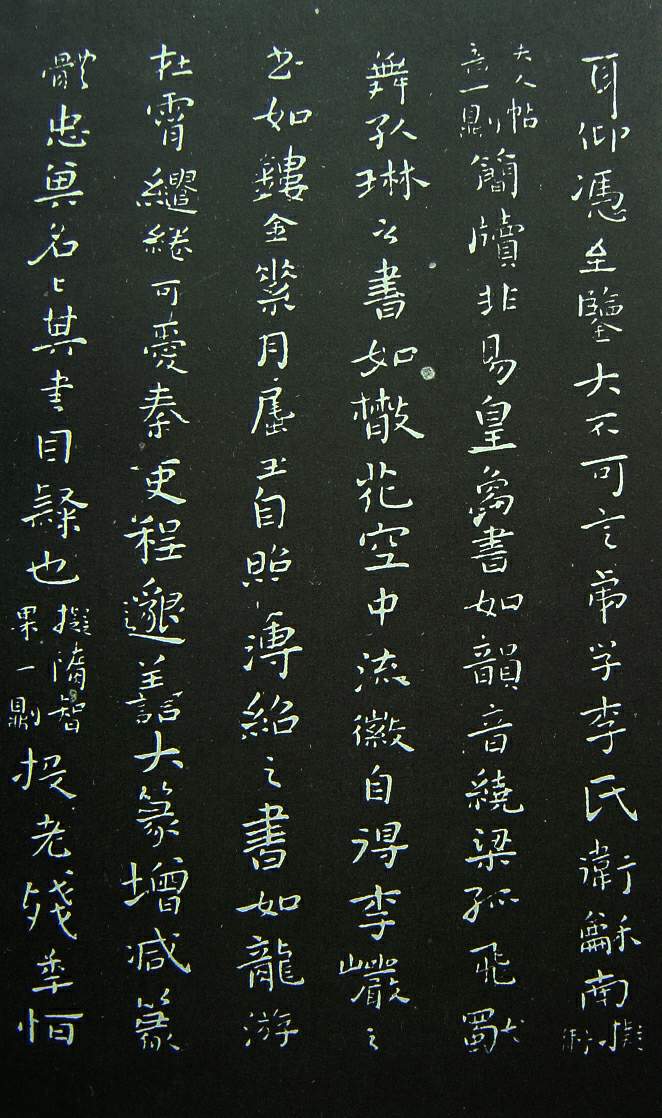 耳仰馮至鑒大不可言弟子李氏衛龢南擬衛
夫人帖意一則簡牘非易皇象書如韻音繞梁孤飛獨
舞孔琳之書如散花空中流徽自得李巖之
書如鏤金素月屈玉自照薄紹之書如龍游
在霄繾綣可愛秦吏程邈善大篆增減篆
體忠其名上其書曰隸也擬隋智果一則投老殘年恆